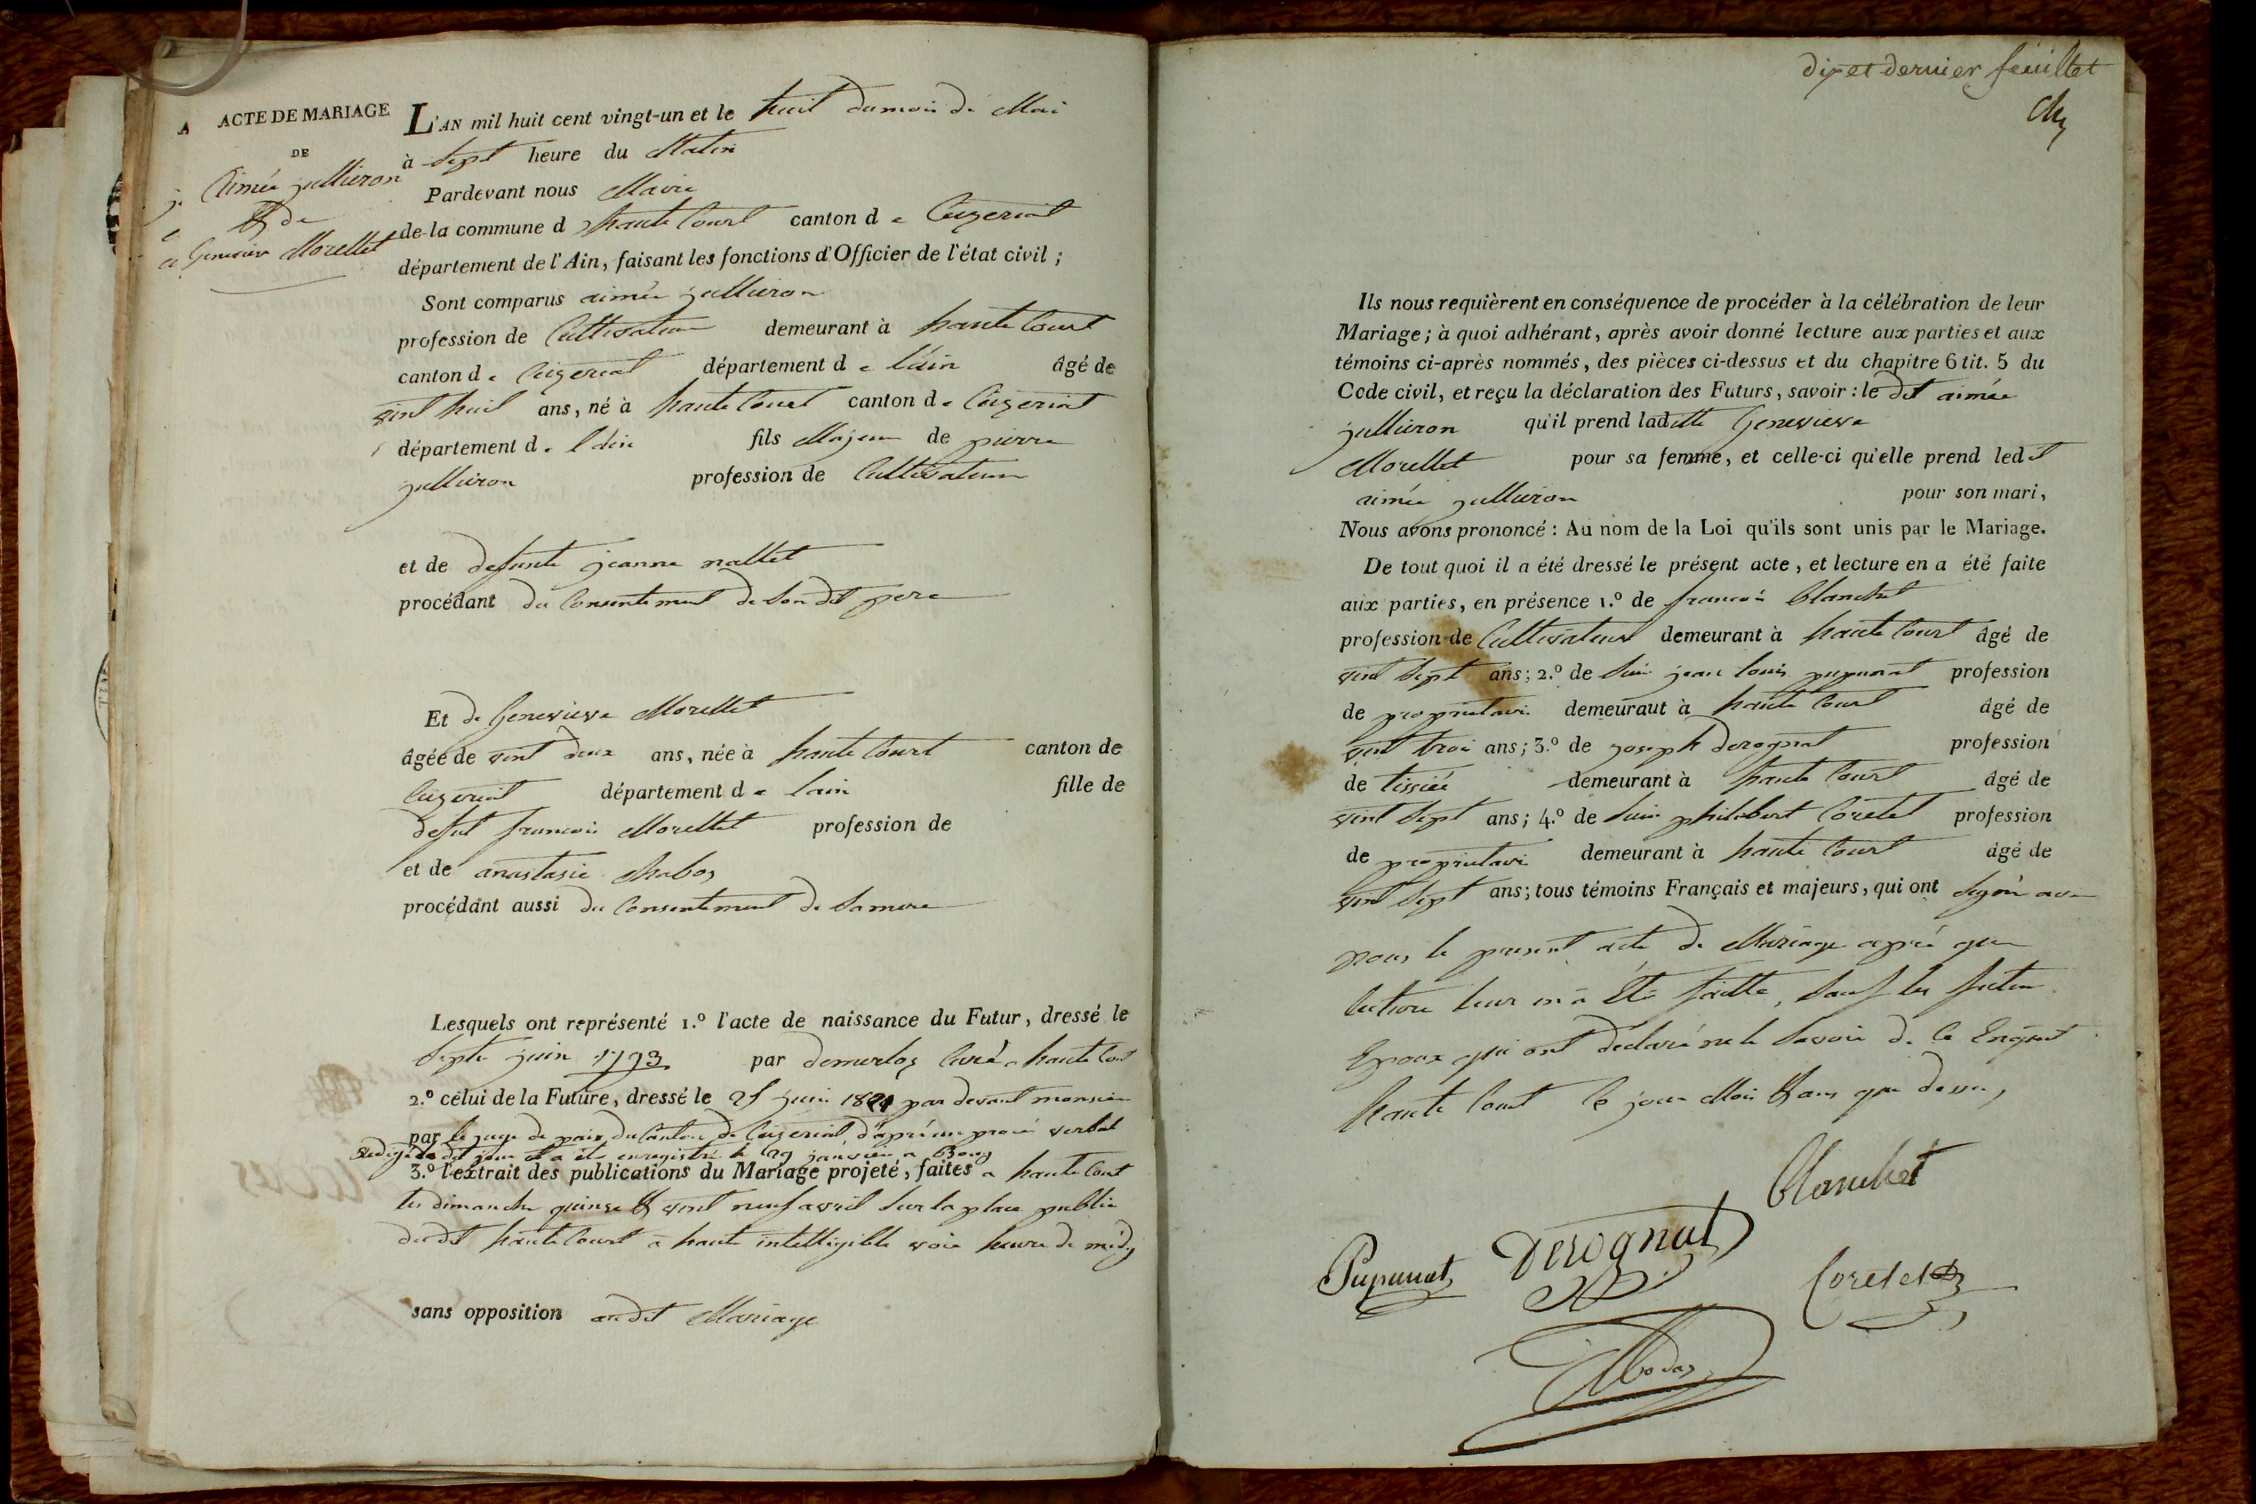 ACTE DE MARIAGE
DE
Aimée jullieron
& de
Genevieve Morellet
L'AN mil huit cent vingt-un et le huit du mois de Mai
à Sept heure du Matin
Pardevant nous Maire
de la commune d haute Court canton d e Ceyzeriat
département de l'Ain, faisant les fonctions d'Officier de l'état civil ;
Sont comparus aimée jullieron
profession de Cultivateur demeurant à haute Court
canton d e Ceyzeriat département d e l'ain âgé de
vint huit ans, né à haute Court canton d e Ceyzeriat
département d e l'ain fils Majeur de pierre
jullieron profession de Cultivateur
et de defunte jeanne mallet
procédant du Consentement de Son dit pere
Et de Genevieve Morellet
âgée de vint deux ans, née à haute Court canton de
Ceyzeriat département d e lain fille de
defut francois Morellet profession de
et de anastasie
procédant aussi du Consentement de Sa mere
Lesquels ont représenté 1.º l'acte de naissance du Futur, dressé le
Septe juin 1793 par Curé a haute Court
2.º célui de la Future, dressé le juin par devant monsieur
par le juge de paix du Canton de Ceyzeriat, d'aprés un procé verbal
Redigé le dit jour et a été enregistré le 29 janvier a Bourg
3.º l'extrait des publications du Mariage projeté, faites a haute Court
les dimanche quinze & vint neuf avril Sur la place publie
du dit haute Court a haute intelligible voix heure de midy
sans opposition au dit Mariage
dix et dernier feuillet
Ils nous requièrent en conséquence de procéder à la célébration de leur
Mariage ; à quoi adhérant, après avoir donné lecture aux parties et aux
témoins ci-après nommés, des pièces ci-dessus et du chapitre 6 tit. 5 du
Code civil, et reçu la déclaration des Futurs, savoir : le dit aimée
jullieron qu'il prend laditte Genevieve
Morellet pour sa femme, et celle-ci qu'elle prend ledit
aimée jullieron pour son mari,
Nous avons prononcé : Au nom de la Loi qu'ils sont unis par le Mariage.
De tout quoi il a été dressé le présent acte, et lecture en a été faite
aux parties, en présence 1.º de francois blanchet
profession de Cultivateur demeurant à haute Court âgé de
vint Sept ans ; 2.º de Sieur jean louis pupunat profession
de proprietaire demeuraut à haute Court âgé de
vint trois ans ; 3.º de joseph derognat profession
de tissié demeurant à haute Court âgé de
vint Sept ans ; 4.º de Sieur philibert Coretet profession
de proprietaire demeurant à haute Court âgé de
vint Sept ans ; tous témoins Français et majeurs, qui ont Signé avec
nous le present acte de Mariage aprés que
lecture leur en a été faitte, Sauf les futur
Epoux qui ont declaré ne le Savoir de ce Enquit
haute Court le jour Mois & ans que dessu,
Blanchet
Pupunat Derognat Coretet